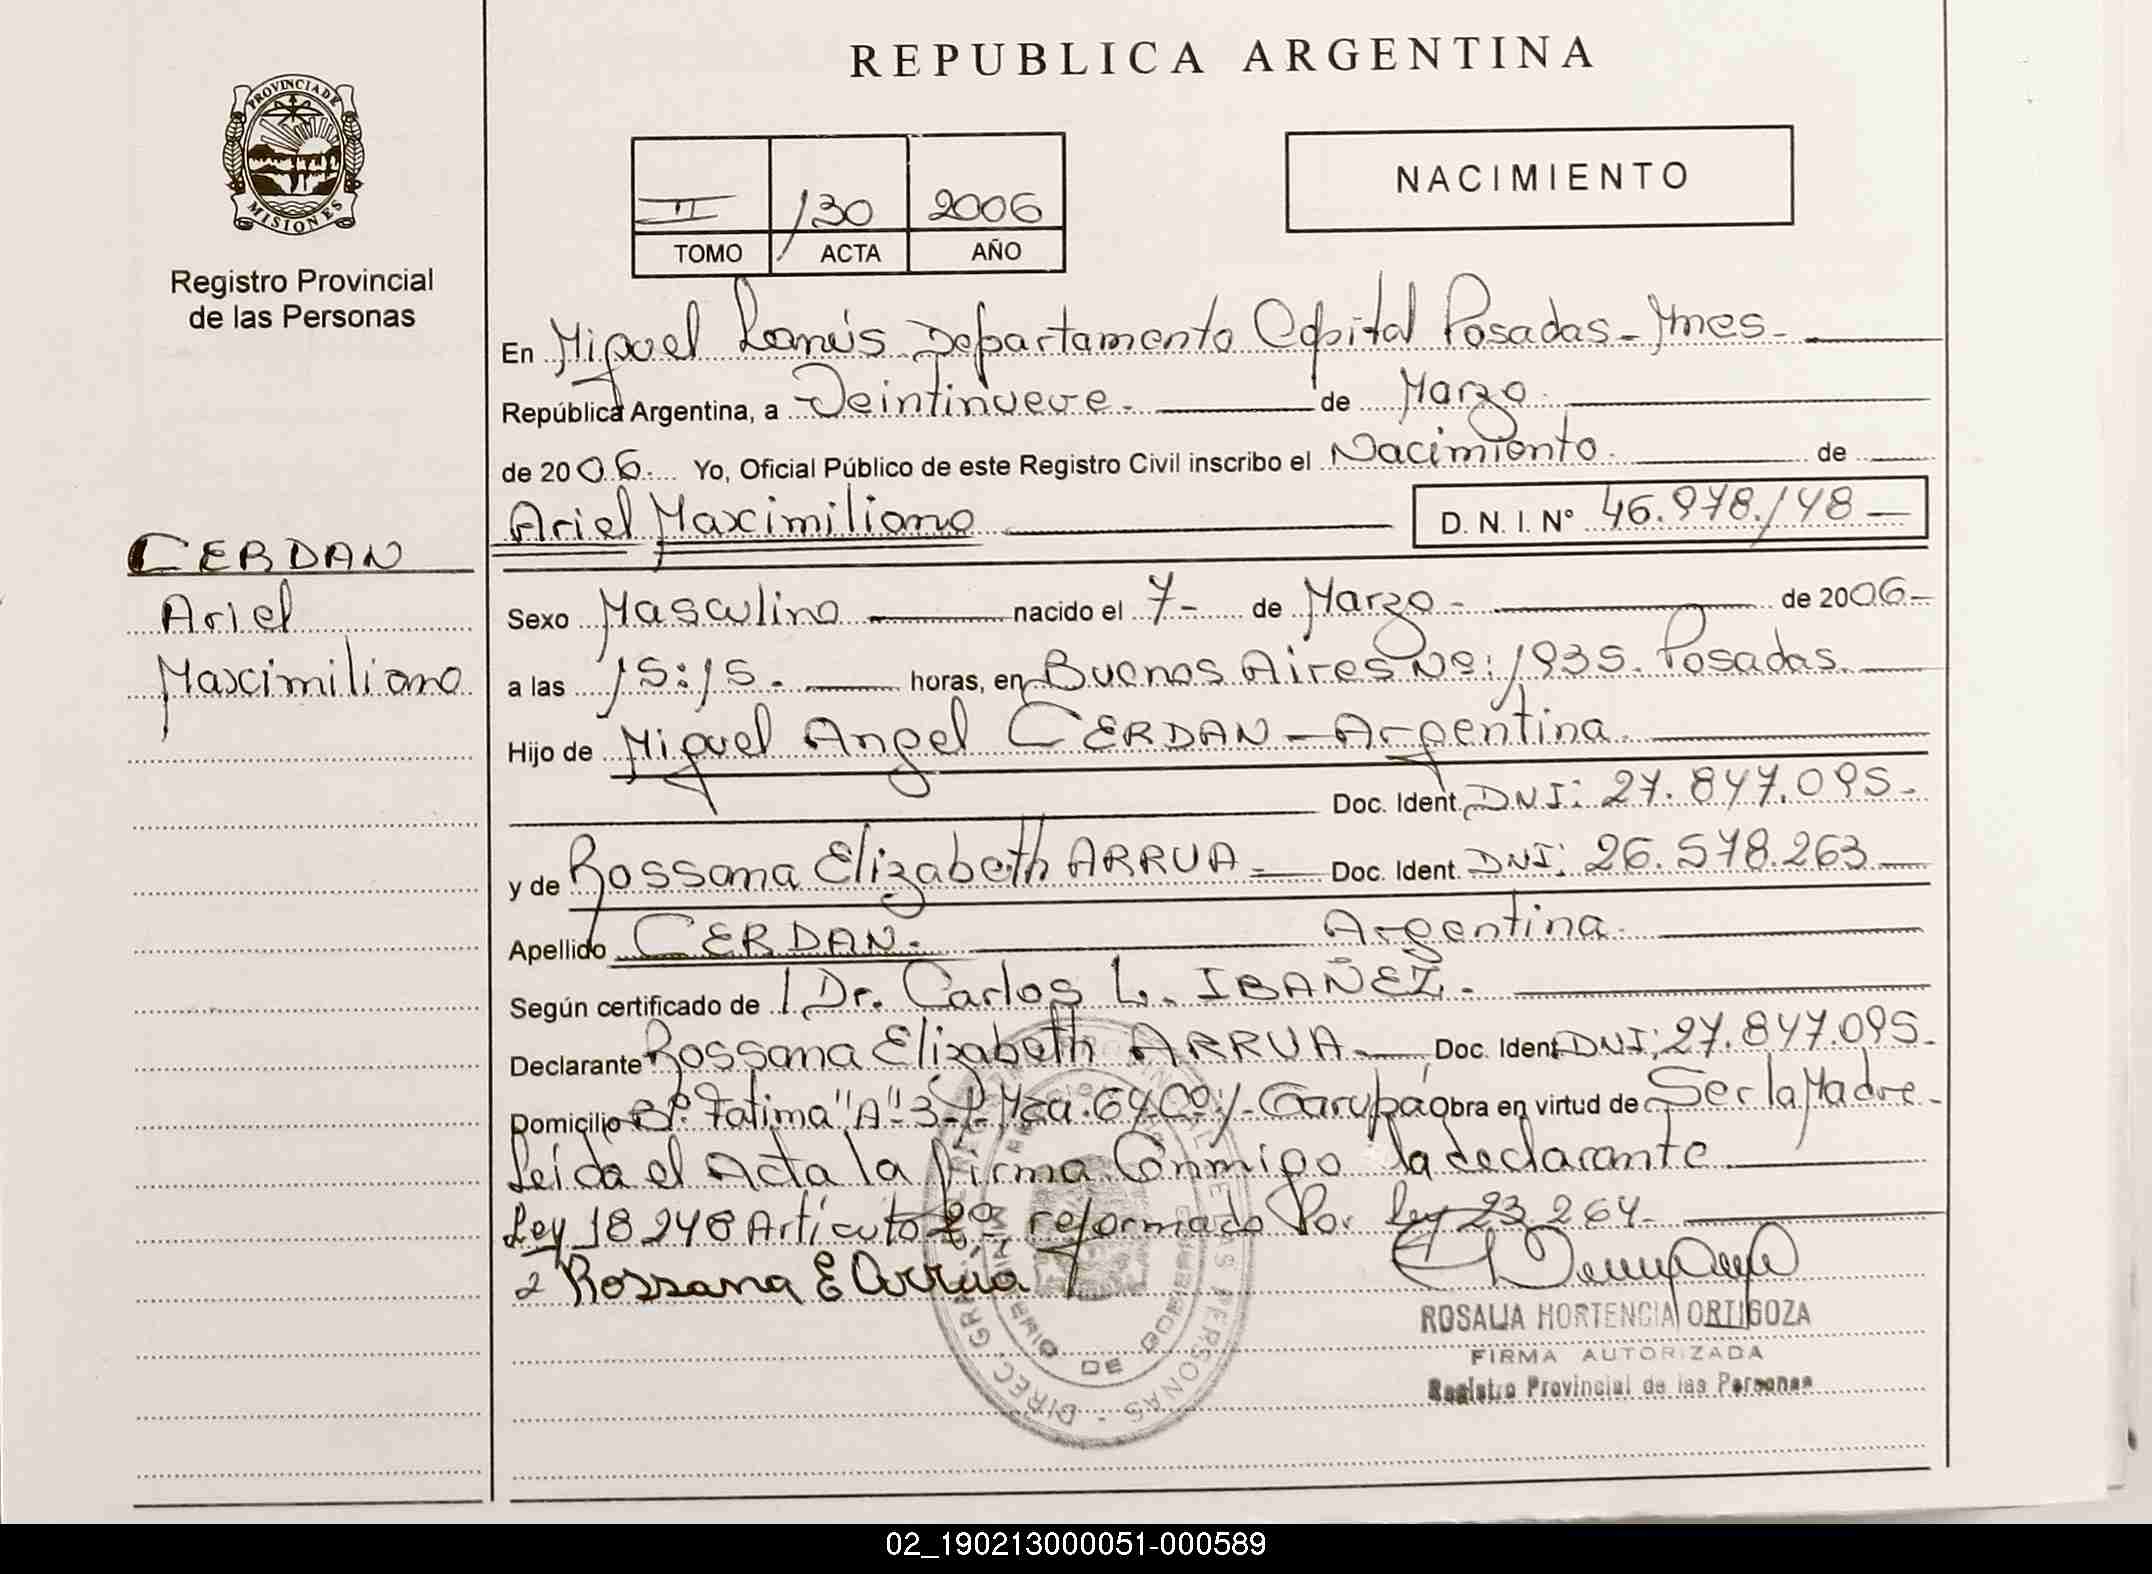 REPUBLICA ARGENTINA
PROVINCIA DE
MISIONES
Registro Provincial
de las Personas
II 130 2006
TOMO ACTA AÑO
NACIMIENTO
En Miguel Lanús Departamento Capital Posadas - Mnes -
República Argentina, a Veintinueve. de Marzo.
de 2006. Yo, Oficial Público de este Registro Civil inscribo el Nacimiento. de
Ariel Maximiliano D. N. I. Nº 46.978.148
CERDAN
Ariel
Maximiliano
Sexo Masculino nacido el 7- de Marzo - de 2006-
a las 15:15. horas, en Buenos Aires Nº: 1935. Posadas.
Hijo de Miguel Angel CERDAN - Argentina.
Doc. Ident. DNI: 27.847.095.-
y de Rossana Elizabeth ARRUA - Doc. Ident. DNI: 26.578.263
Apellido CERDAN. Argentina.
Según certificado de Dr. Carlos L. IBAÑEZ.
Declarante Rossana Elizabeth ARRUA Doc. Ident DNI: 27.847.095.
Domicilio Bº. Fatima "A" 3 Mza. 64 Garupá Obra en virtud de Ser la Madre -
Leída el Acta la firma Conmigo la declarante
Ley 18 248 Artículo 2º reformado Por Ley 23 264.
Rossana E Arrua
ROSALIA HORTENCIA ORTIGOZA
FIRMA AUTORIZADA
Registro Provincial de las Personas
02_190213000051-000589